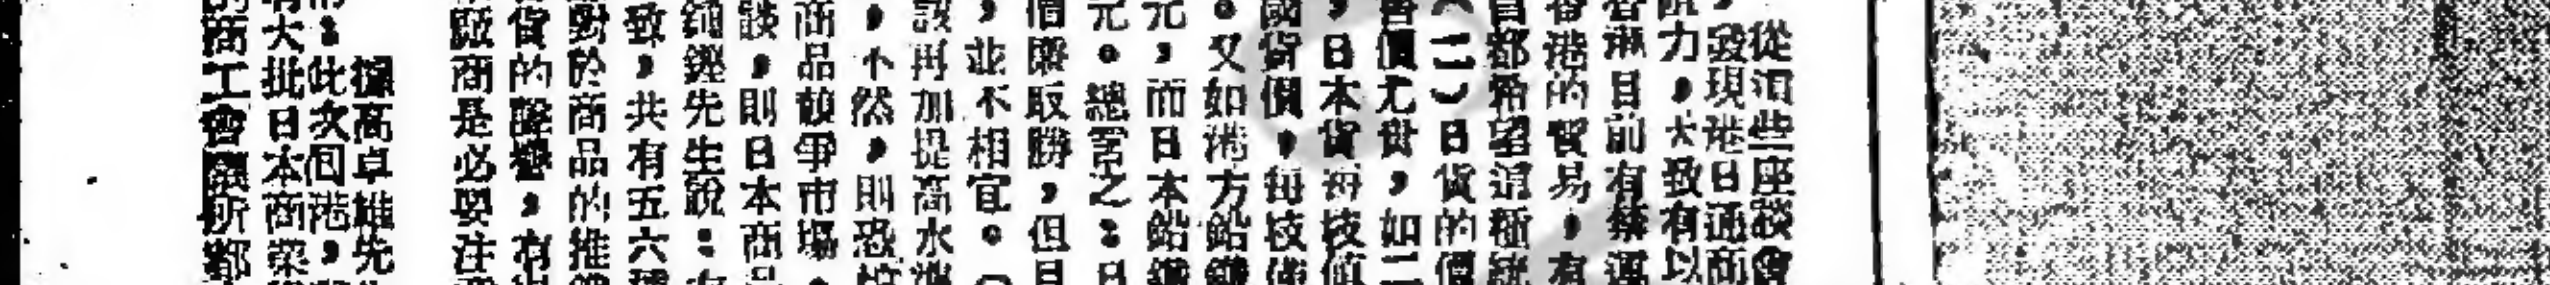 從這些座談會
，發現港日通商
阻力，大致有以
香港目前有禁運
香港的貿易，有
都希望這種
（二）日貨的價
價尤貴，如二
，日本貨每枝值
國貨價，每枝值
。又如港方鉛鐵
元，而日本鉛鐵
元。總言之：日
價廉取勝，但目
，並不相宜。（
該再加提高水準
，不然，則恐怕
商品競爭市場。
談，則日本商品
鏗先生說：
致，共有五六種
對於商品的推
貨的聲譽，有
廠商是必要注
據高卓雄先
：此次回港，
有大批日本商
的商工會所都